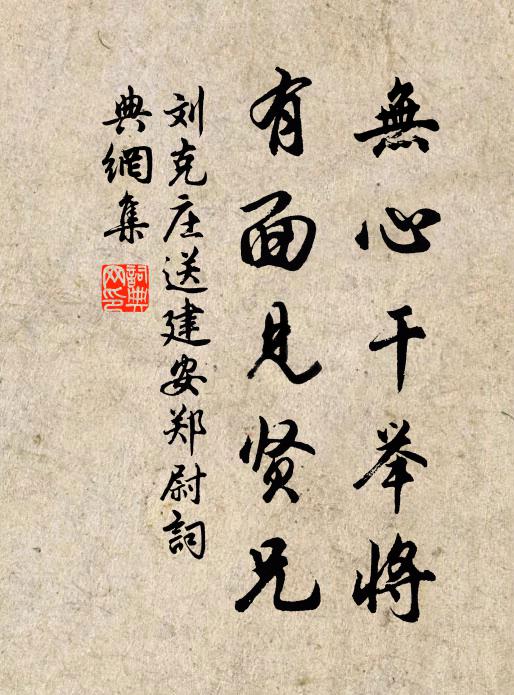 無心干举將
有面見贤兄
刘克庄送建安郑尉詞
典網集
詞典网印